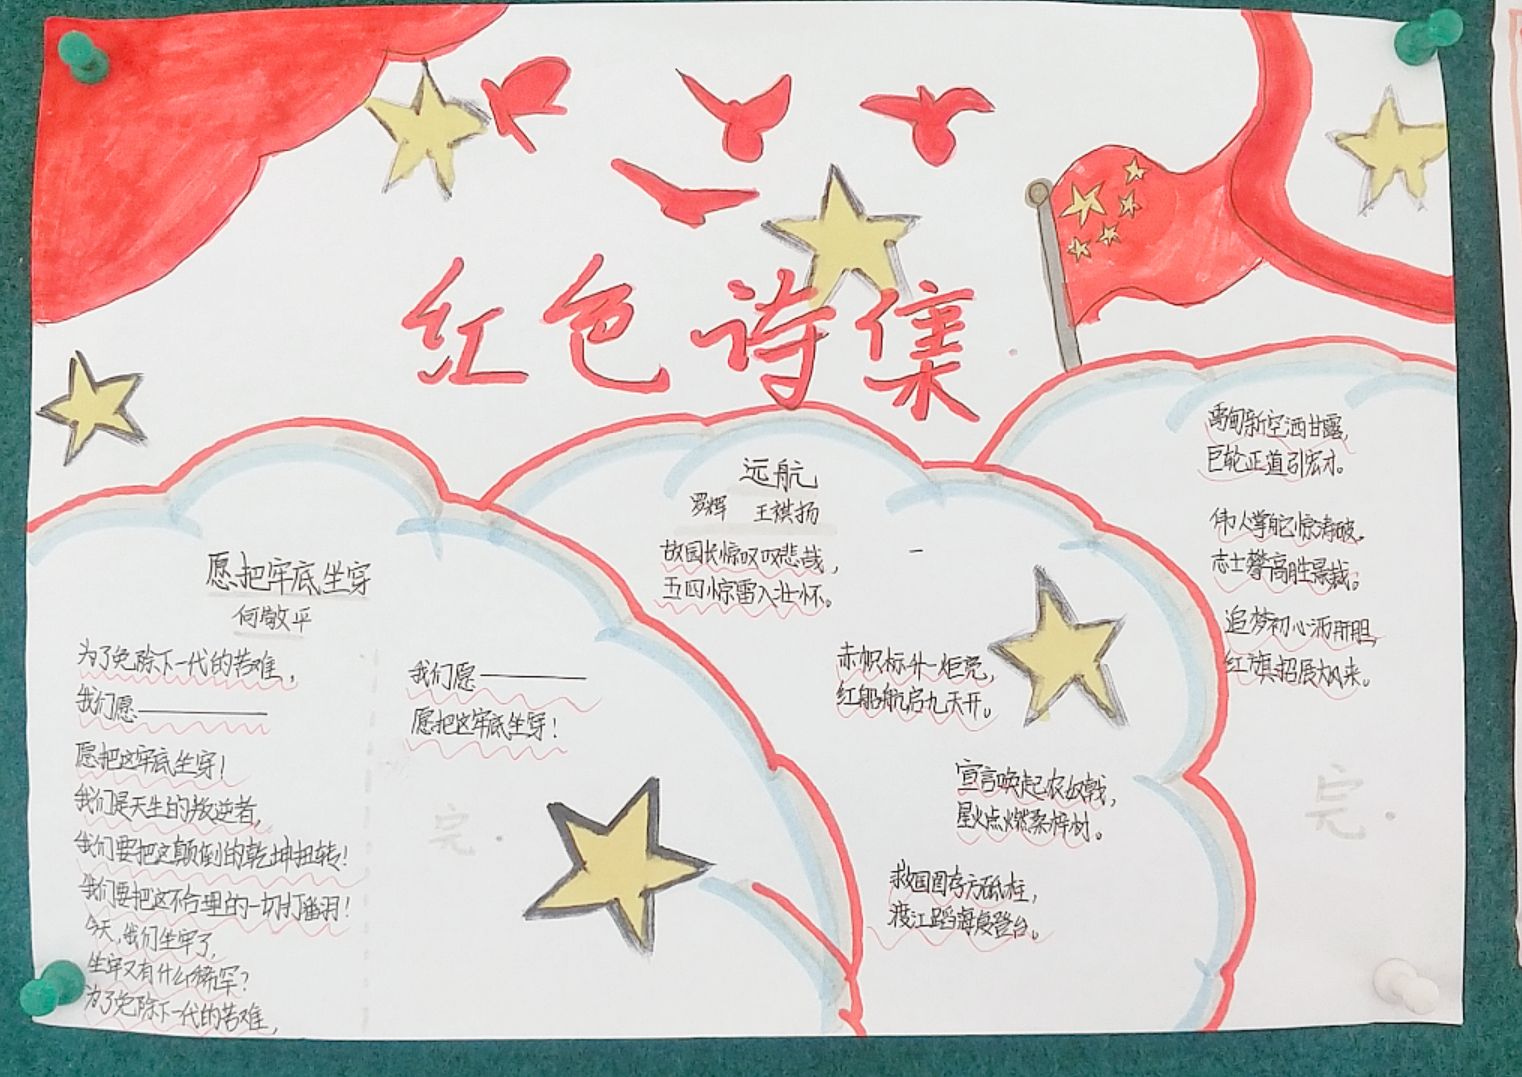 红色诗集
愿把牢底坐穿
何敬平
为了免除下一代的苦难，
我们愿————
愿把这牢底坐穿！
我们是天生的叛逆者，
我们要把这颠倒的乾坤扭转！
我们要把这不合理的一切打翻！
今天，我们坐牢了，
坐牢又有什么稀罕？
为了免除下一代的苦难，
我们愿————
愿把这牢底坐穿！
完.
远航
罗辉 王祺扬
故园长惊叹叹悲哉，
五四惊雷入壮怀。
赤帜标升一炬亮，
红船航启九天开。
宣言唤起农奴戟，
星火点燃桑梓材。
救国图存方砥柱，
渡江蹈海度登台。
禹甸新空洒甘露，
巨轮正道引宏才。
伟人掌舵惊涛破。
志士攀高胜景裁。
追梦初心沥肝胆，
红旗招展大风来。
完.